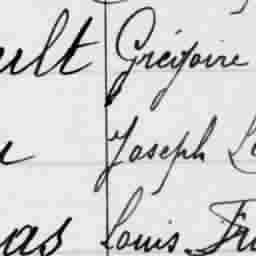 ult Grégoire
Joseph
as Louis